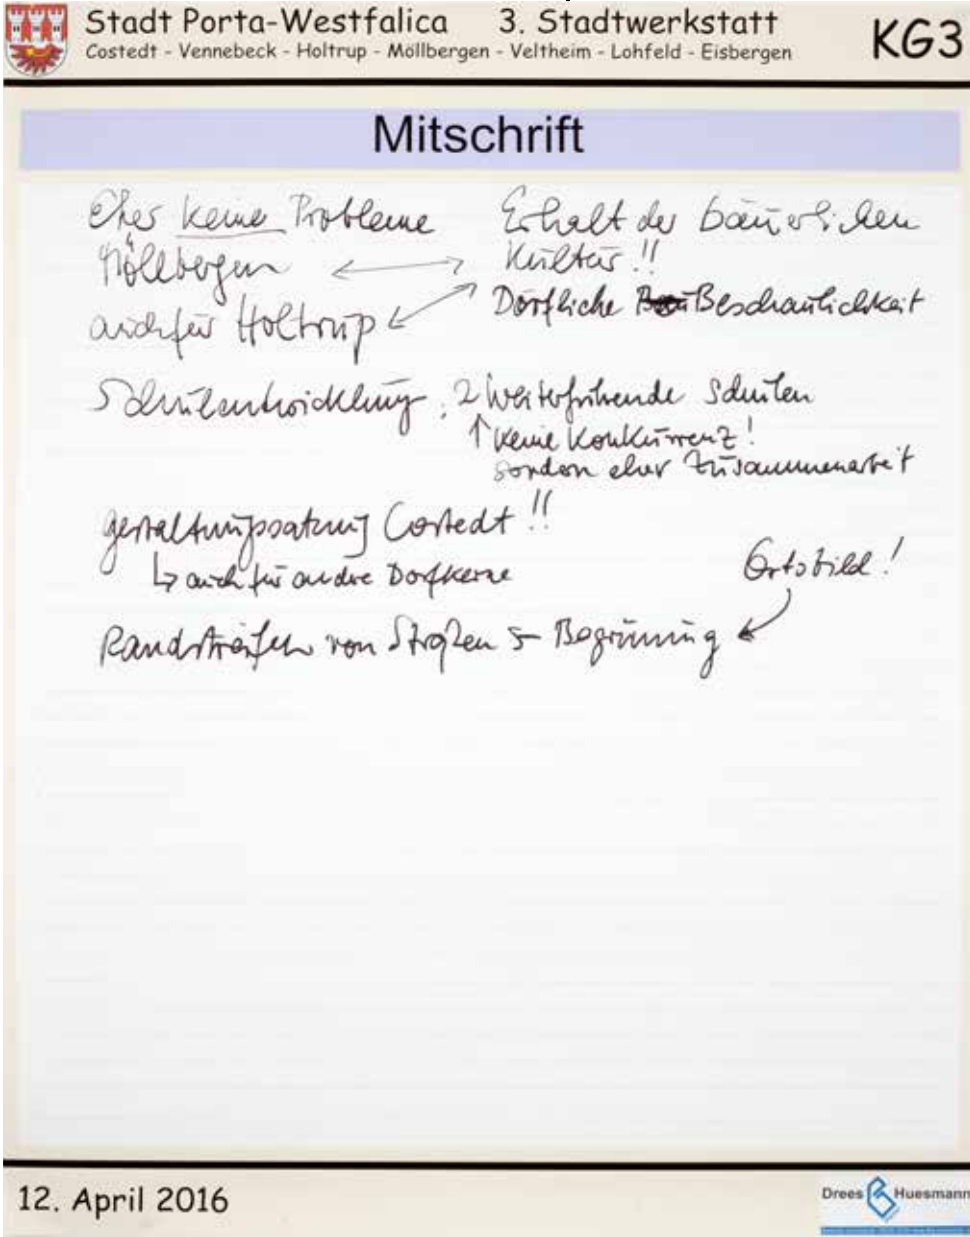 Stadt Porta-Westfalica 3. Stadtwerkstatt
Costedt - Vennebeck - Holtrup - Möllbergen - Veltheim - Lohfeld - Eisbergen
KG3
Mitschrift
Eher keine Probleme
Möllbergen
auch für Holtrup
Erhalt der bäuerlichen
Kultur!!
Dörfliche Beschaulichkeit
Schulentwicklung: 2 weiterführende Schulen
keine Konkurrenz!
sondern eher Zusammenarbeit
Gestaltungssatzung Costedt!!
auch für andre Dorfkerne
Ortsbild!
Randstreifen von Straßen Begrünung
12. April 2016
Drees Huesmann